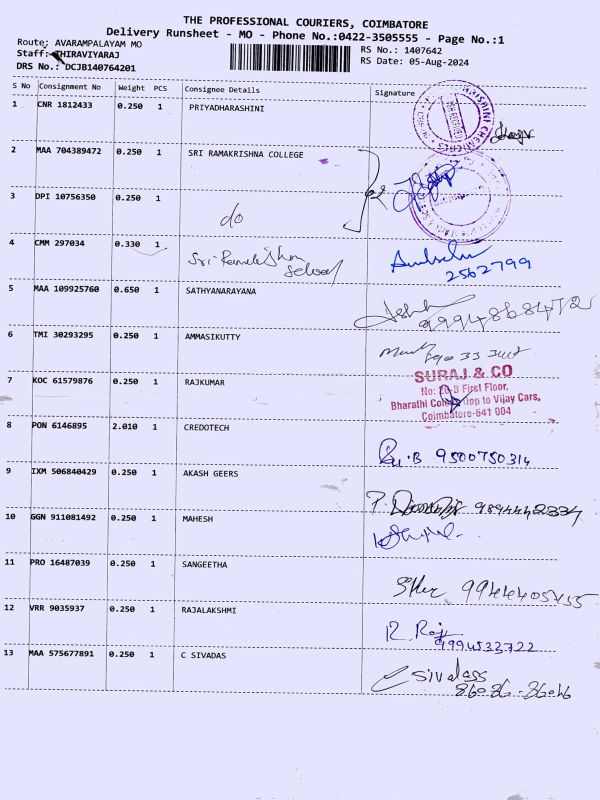 THE PROFESSIONAL COURIERS, COIMBATORE
Delivery Runsheet - MO - Phone No.:0422-3505555 - Page No.:1
Route: AVARAMPALAYAM MO
RS No.: 1407642
Staff: THIRAVIYARAJ
RS Date: 05-Aug-2024
DRS No.: DCJB140764201
S No Consignment No Weight PCS Consignee Details Signature
1 CNR 1812433 0.250 1 PRIYADHARASHINI
2 MAA 704389472 0.250 1 SRI RAMAKRISHNA COLLEGE
3 DPI 10756350 0.250 1 do
4 CMM 297034 0.330 1 Sri Ramakrishna School
2562799
5 MAA 109925760 0.650 1 SATHYANARAYANA
9994868472
6 TMI 30293295 0.250 1 AMMASIKUTTY
7 KOC 61579876 0.250 1 RAJKUMAR
SURAJ & CO
First Floor,
Bharathi Colony Opp to Vijay Cars,
Coimbatore-641 004
8 PON 6146895 2.010 1 CREDOTECH
9500750314
9 IXM 506840429 0.250 1 AKASH GEERS
10 GGN 911081492 0.250 1 MAHESH
11 PRO 16487039 0.250 1 SANGEETHA
12 VRR 9035937 0.250 1 RAJALAKSHMI
R. Raji
9994533722
13 MAA 575677891 0.250 1 C SIVADAS
C Sivadass